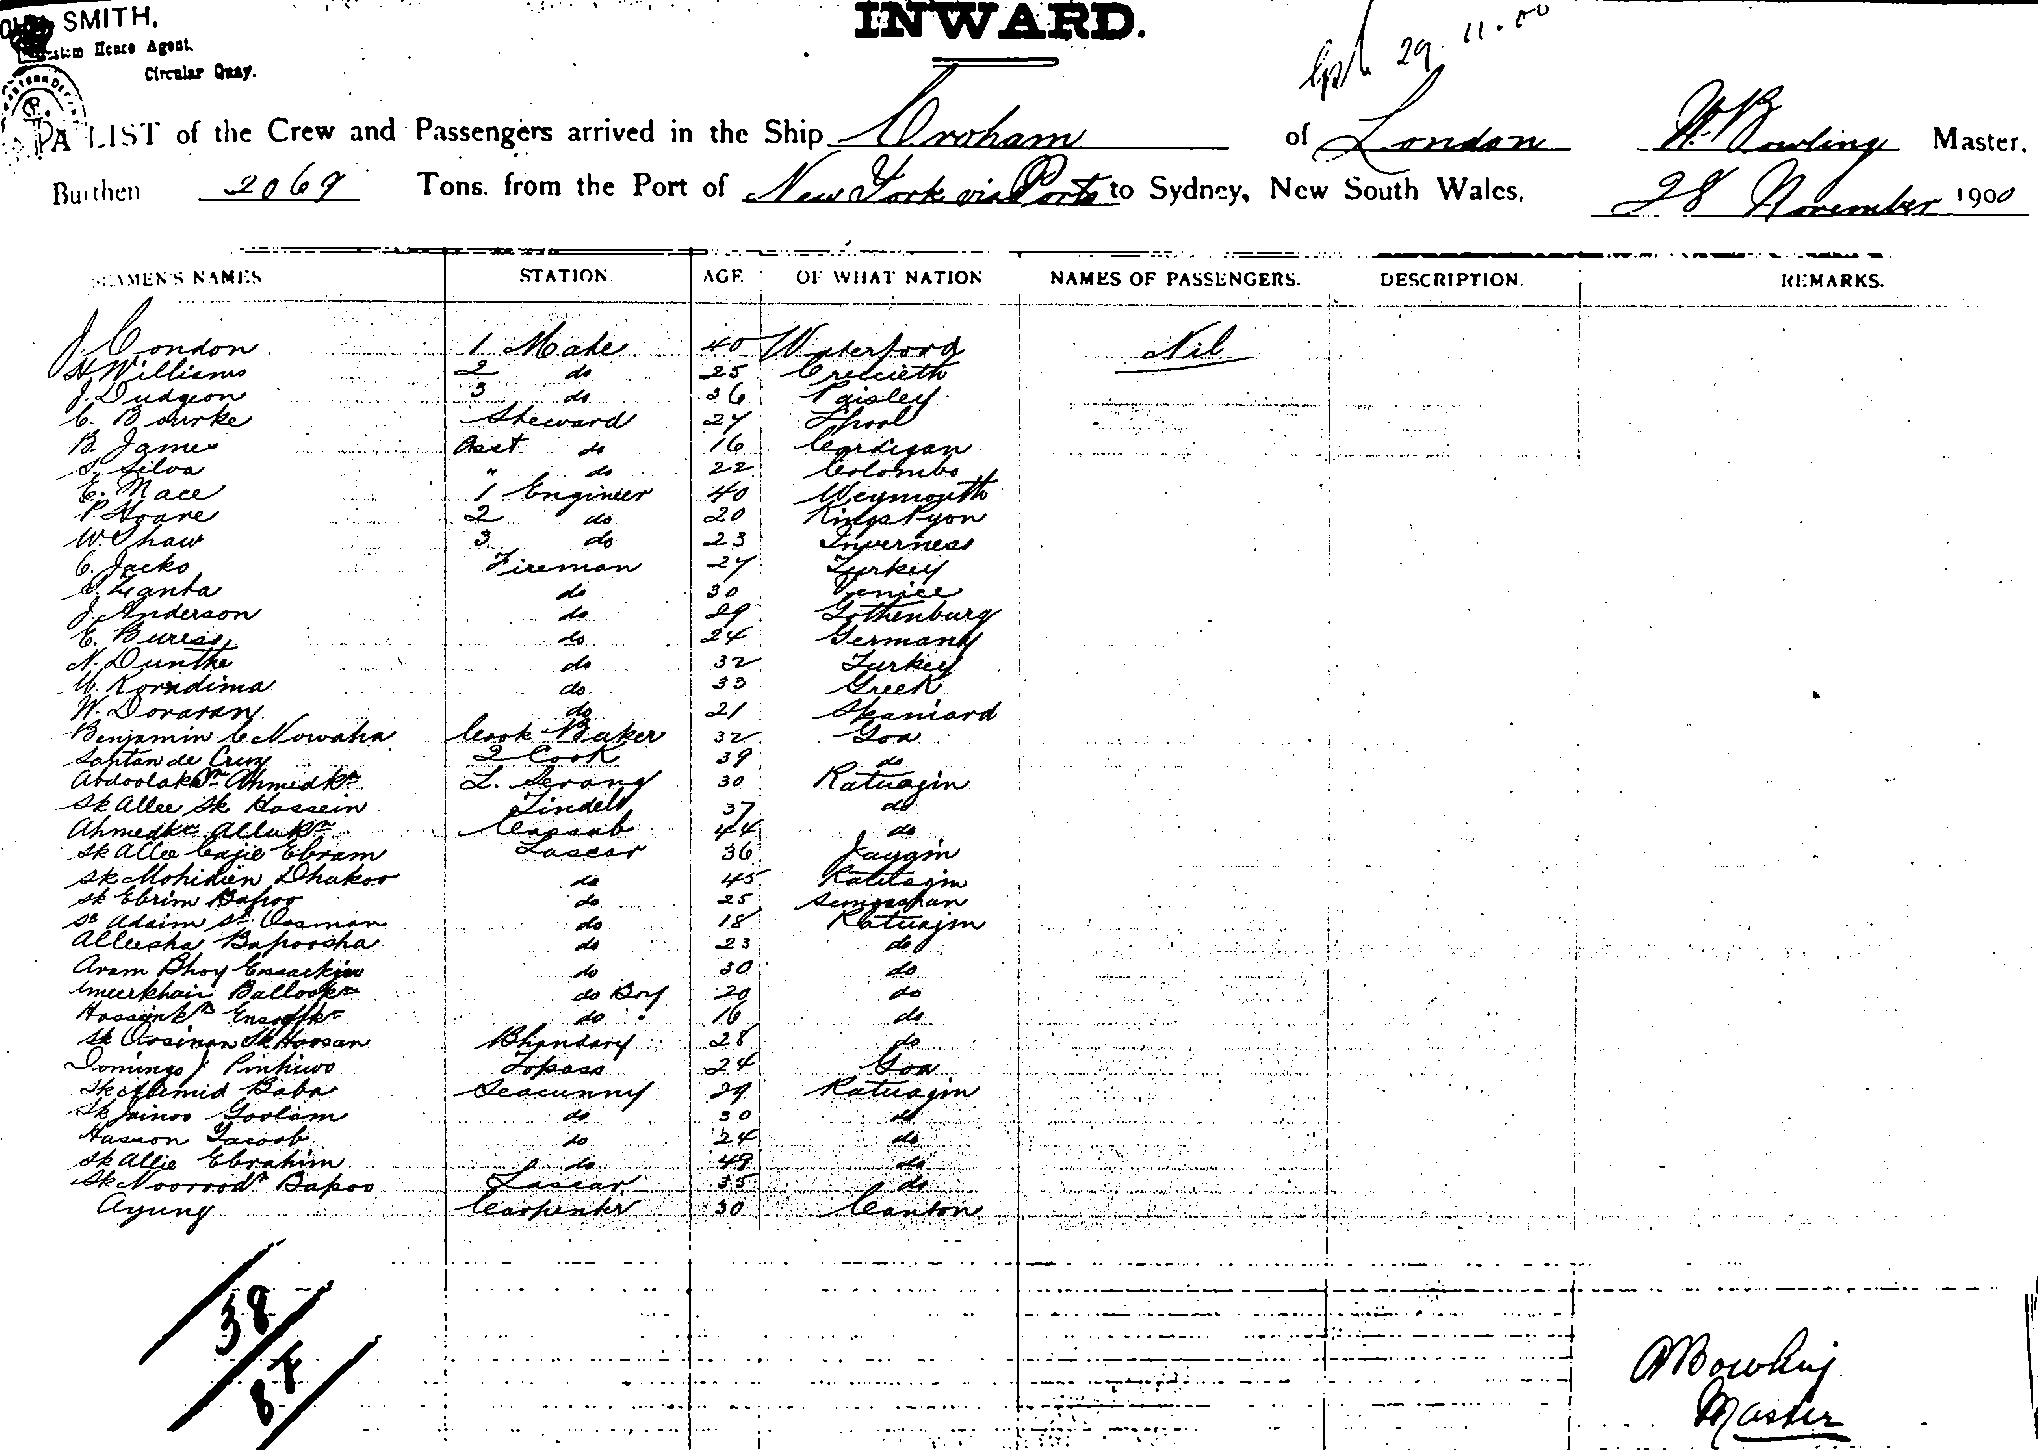 SMITH,
INWARD.
Custom House Agent.
Circular Quay.
29.11.00
A LIST of the Crew and Passengers arrived in the Ship Croham of London W. Bowling Master,
Burthen 2069 Tons. from the Port of New York via Ports to Sydney, New South Wales, 28 November 1900
SEAMEN'S NAMES STATION AGE OF WHAT NATION NAMES OF PASSENGERS. DESCRIPTION. REMARKS.
J Condon 1 Mate 40 Waterford Nil
H Williams 2 do 25 Criccieth
J. Dudgeon 3 do 26 Paisley
C. Bourke Steward 27 Lpool
B. James Asst do 16 Cardigan
S. Silva " do 22 Colombo
E. Mace 1 Engineer 40 Weymouth
P Hoare 2 do 20 Kings Pyon
W. Shaw 3 do 23 Inverness
C. Jacko Fireman 27 Turkey
C. Zanta do 30 Venice
J. Anderson do 29 Gothenburg
E. Buress do 24 Germany
N. Dunthe do 32 Turkey
M. Korndima do 33 Greek
W. Dovaran do 21 Spaniard
Benjamin C Nowaha Cook Baker 32 Goa
Santan de Cruz 2 Cook 39 do
Ahmedkn 1. Serang 30 Ratnagin
Sk Allee Sk Hossein Tindell 37 do
Ahmedkn Allukn Cassab 44 do
Sk Allee Cajie Ebram Lascar 36 Jaygin
Sk Mohidien Dhakoo do 45 Ratnagin
Sk Ebrim Bapoo do 25
Sk Adaim Sk Oosman do 18 Ratnagin
Alleesha Bapoosha do 23 do
Aram Bhoy do 30 do
Ballookn do Boy 20 do
do " 16 do
Sk Oosman Sk Hoosan Bhandary 28 do
Domingo J Pinhiwo Topass 24 Goa
Sk Ahmid Baba Seacunny 29 Ratnagin
Sk Jainoo Goolam do 30 do
Hasson Jacoob do 24 do
Sk Allie Ebrahim do 49 do
Sk Noorood Bapoo Lascar 35 do
Ayung Carpenter 30 Canton
38
Bowling
Master